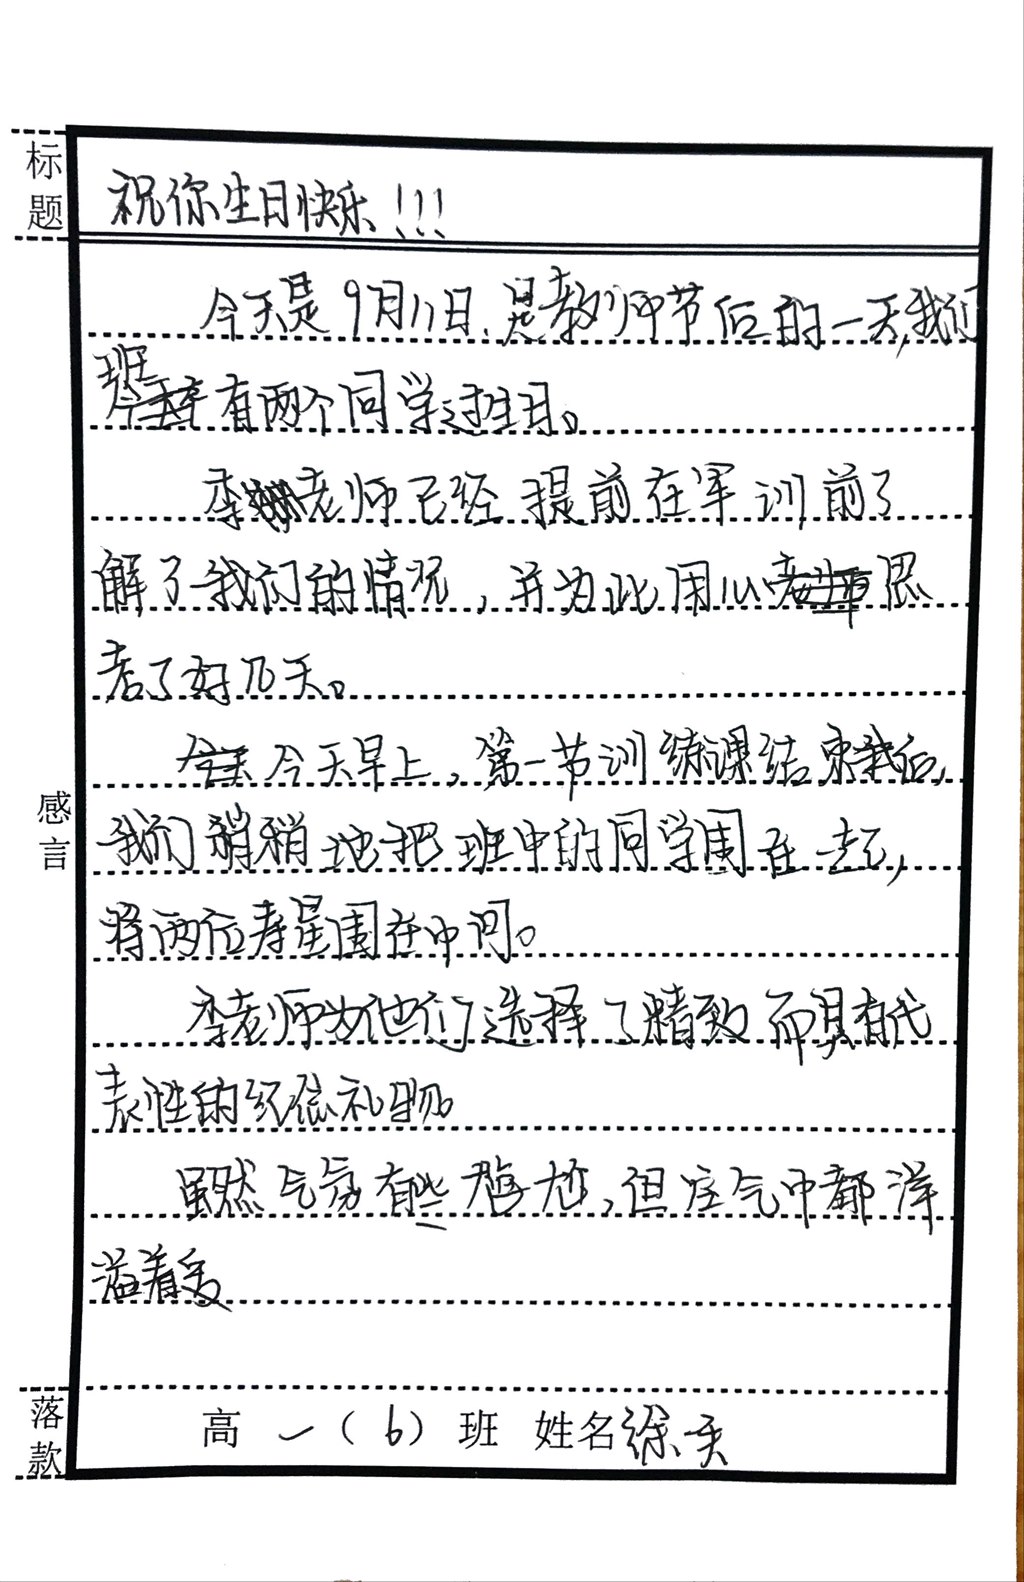 标题
祝你生日快乐!!!
今天是9月11日、是教师节后的一天,我们
班有两个同学过生日。
李老师已经提前在军训前了
解了我们的情况,并为此用心思
考了好几天。
今天早上,第一节训练课结束后,
我们稍稍地把班中的同学围在一起,
将两位寿星围在中间。
李老师为他们选择了精致而具有代
表性的纪念礼物。
虽然气氛有些尴尬,但空气中都洋
溢着爱
感言
落款
高一(6)班 姓名徐天